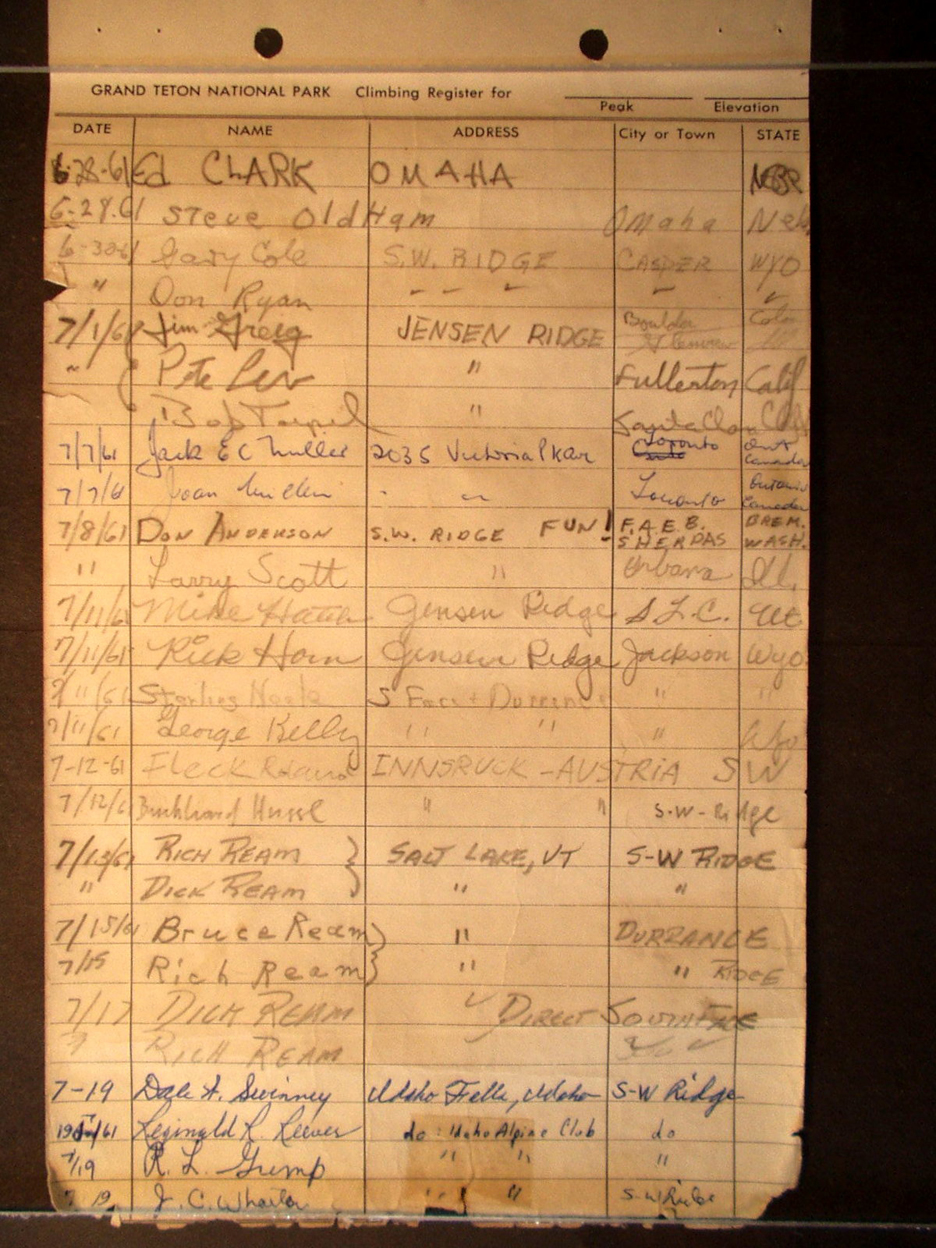 GRAND TETON NATIONAL PARK Climbing Register for
Peak Elevation
DATE NAME ADDRESS City or Town STATE
6-28-61 Ed CLARK OMAHA NEBR
6-29.61 Steve Oldham Omaha Neb
6-30-61 Gary Cole S.W. RIDGE CASPER WYO
" Don Ryan
7/1/61 Jim Greig JENSEN RIDGE Boulder Colo
Pete Lev " Fullerton Calif
Bob " Santa Clara
7/7/61 Jack E C 2035 Victoria Pk Av Toronto Ont Canada
7/7/61 Joan Toronto Ontario Canada
7/8/61 DON ANDERSON S.W. RIDGE FUN! F.A.E.B. SHERPAS BREM. WASH.
" Larry Scott " Urbana Ill.
7/11/61 Mike Jensen Ridge S.L.C. Ut
7/11/61 Rick Horn Jensen Ridge Jackson Wyo
7/11/61 Sterling Neale S Face + Durrance " "
7/11/61 George Kelly " " " Wyo
7-12-61 INNSRUCK - AUSTRIA S W
7/12/61 " " S.W - Ridge
7/13/61 RICH REAM SALT LAKE, UT S-W RIDGE
" DICK REAM " "
7/15/61 Bruce Ream " DURRANCE
7/15 Rich Ream " " RIDGE
7/17 DICK REAM DIRECT SOUTH FACE
RICH REAM
7-19 Dale A. Swinney Idaho Falls, Idaho S-W Ridge
61 Reginald R. Reeves do: Idaho Alpine Club do
7/19 R. L. " " "
7 19 J. C. Wharton " " S.W Ridge